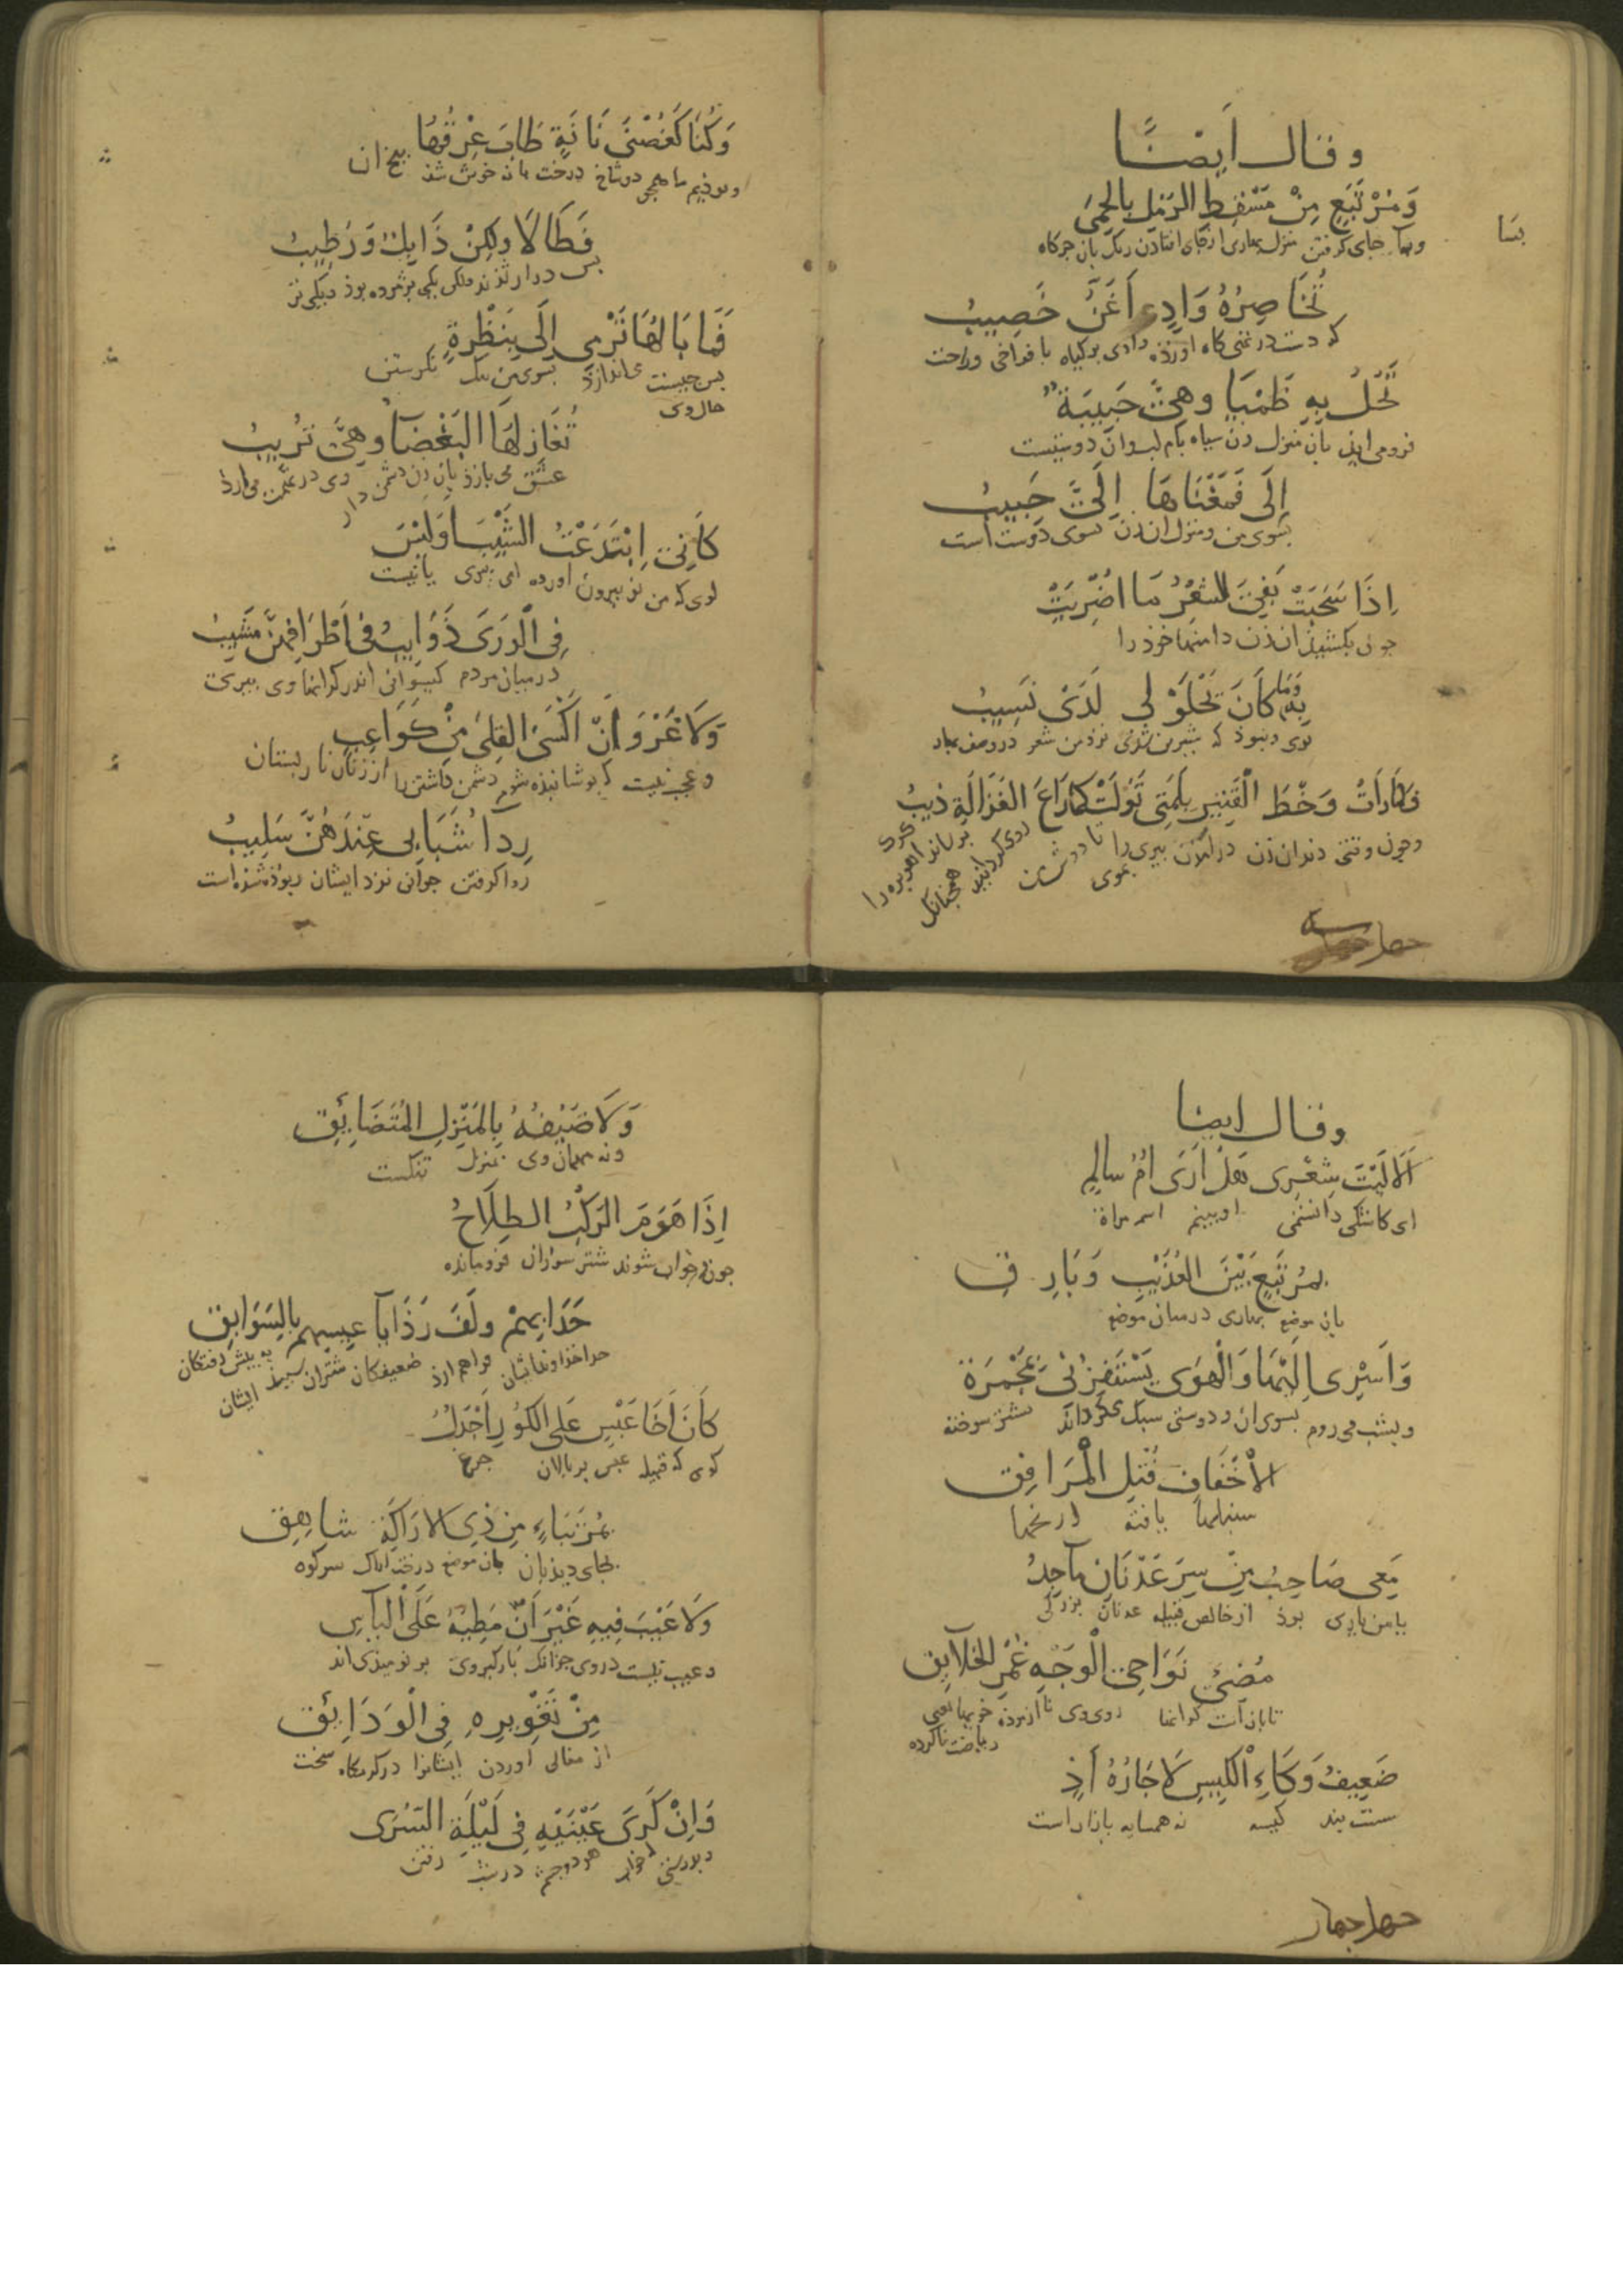 وقال أيضًا
وَمُرْتَبَعٍ مِنْ مَسْقَطِ الرَّمْلِ بِالحِمَى
بسا
وبسا جاى گرفتن منزل بهارى از جاى افتادن ريگ بان جرگاه
تُخَاصِرُهُ وَادٍ أَغَنُّ خَصِيبُ
كه دست در تهى گاه اورذه وادى پر گياه با فراخى وراحت
تَحُلُّ بِهِ ظَمْيَا وَهِيَّ حَبِيبَةٌ
فرومى ايذ بان منزل زن سياه بام لب وان دوستست
إِلَى فَمَغْنَاهَا إِلَيَّ حَبِيبُ
بسوى من ومنزل ان زن بسوى دوست است
إِذَا سَحَبَتْ
جون بكشيذ ان زن دامنها خوذ را
وَمَا كَانَ يَحْلَوْ لِي لَدَىَّ نَسِيبُ
بوى ونبوذ كه شيرين شوذى نزد من شعر در وصف
فَكَمَا رَأَتْ وَخْطَ القَتِيرِ بِلَمَّتِي تَوَلَّتْ كَمَا رَاعَ الغَزَالَةَ ذِيبُ
وجون وقتى دذ ان زن در امذن پيرى را بموى تا دوش من روى گردانيذ همجنانك بترساند اهو بره را گرگ
جهار
وَكُنَّا كَغُصْنَيْ بَانَةٍ طَابَ عِرْقُهَا
وبوذيم ما همجو دو شاخ درخت بانه خوش شذ بيخ ان
فَطَالَا وَلكِنْ ذَابِلٌ وَرَطِيبُ
بس دراز شذند ولكن يكى پژمرده بوذ ويكى تر
فَمَا بَالُهَا تَرْمِي إِلَى بِنَظْرَةٍ
بس جيست حال وى مى اندازذ بسوى من يك نگرستن
تُغَازِلُهَا البَغْضَاءُ وَهِيَّ تُرِيبُ
عشق مى بازذ بان زن دشمن دار وى در غم مى ارذ
كَأَنِّيَ اِبْتَدَعْتُ الشَّيْبَ أَوَلَيْسَ
گوى كه من نو بيرون اورده ام پيرى يا نيست
فِي الْوَرَى ذَوَايِبُ فِي أَطْرَافِهِنَّ مَشِيبُ
درميان مردم گيسوانى اندر كرانها وى پيرى
وَلَا غَرْوَ أَنْ أُكْسَى القِلَى مِنْ كَوَاعِبٍ
وعجب نيست كه پوشانيذه شوم دشمن داشتن را از زنان نار پستان
رِدَاءُ شَبَابِي عِنْدَهُنَّ سَلِيبُ
ردا گرفتن جوانى نزد ايشان ربوذه شذه است
وقال ايضا
أَلَا لَيْتَ شِعْرِى هَلْ أَرَى أُمَّ سَالِمٍ
اى كاشكى دانستمى او بينم اسم مراة
بِمُرْتَبَعٍ بَيْنَ العُذَيْبِ وَبَارِقِ
بان موضع بهارى در ميان موضع
وَأَسْرِى إِلَيْهَا وَالْهَوَى يَسْتَفِزُّنِي بِمُجْمَرَةِ
وبشب مى روم بسوى ان ودوستى سبك مى گرداند بشتر سوخته
الأَخْفَافِ فُتْلِ الْمَرَافِقِ
سنبلها يافته ارنجها
مَعِى صَاحِبٌ مِنْ سِرِّ عَدْنَانَ مَاجِدٌ
با من يارى بوذ از خالص قبيله عدنان بزرگى
مُضِئُ نَوَاحِي الْوَجْهِ غُمْرُ الخَلَائِقِ
تابان است كرانها روى وى نا ازموذه خويها يعنى رياضت ناكرده
ضَعِيفُ وَكَاءِ الكِيسِ لَا جَارُهُ أَذٍ
سست بند كيسه نه همسايه بازار است
جهار جهار
وَلَا ضَيْفُهُ بِالمَنْزِلِ المُتَضَائِقِ
ونه مهمان وى بمنزل تنگست
إِذَا هَوَّمَ الرَّكْبُ الطِلَاحُ
جون در خواب شوند شتر سواران فرومانده
حَدَا بِهِمْ وَلَفَّ رَذَايَا عِيسِهِمْ بِالسَّوَابِقِ
فراهم ارذ ضعيفگان شتران سپيذ ايشان به پيش رفتگان
كَأَنَّ أَخَا عَبْسٍ عَلَى الكُورِ أَجْدَلٌ
گوى كه قبيله عبس بر پالان جرغ
بِمُرْتَبَاءٍ مِنْ ذِي الارَاكَةِ شَاهِقِ
بجاى ديذبان بان موضع درخت اراك سركوه
وَلَا عَيْبَ فِيهِ غَيْرَ أَنَّ مَطِيَّهُ عَلَى الْيَأْسِ
وعيب نيست در وى جزانك بارگير وى بر نوميذى اند
مِنْ تَغْوِيرِهِ فِي الْوَدَائِقِ
از مغاكى اوردن ايشانرا در گرمگاه سخت
وَإِنْ كَرَى عَيْنَيْهِ فِي لَيْلَةِ السُرَى
وبدرستى خواب هر دو جشم در شب رفتن